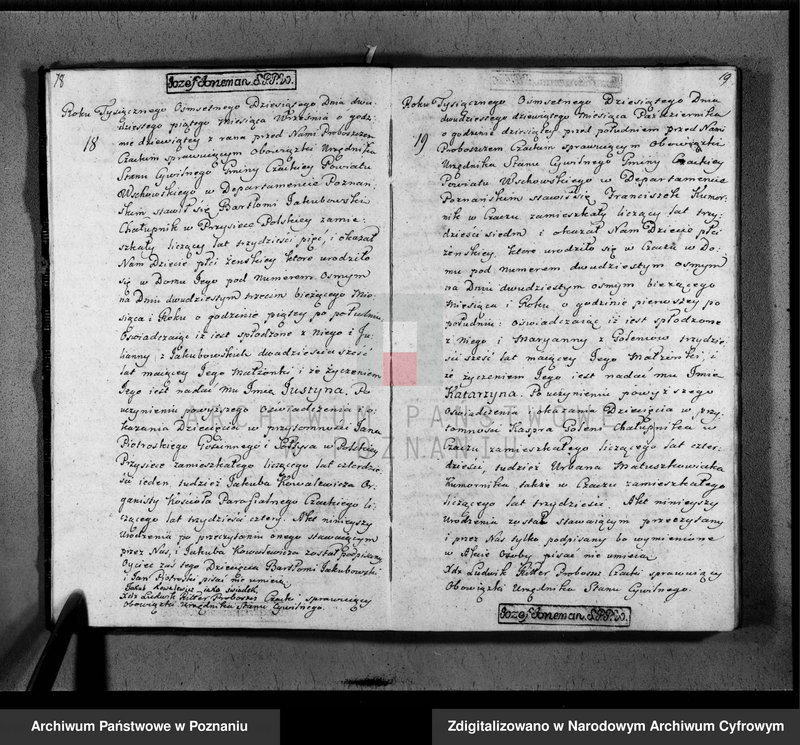 18
Jozef Joneman S.P.P.W.
Roku Tysiącznego Osmsetnego Dziesiątego Dnia dwu-
dziestego piątego Miesiąca Września o godzi-
18
nie dziewiątey z rana przed Nami Proboszczem
Czackim sprawuiącym Obowiązki Urzędnika
Stanu Cywilnego Gminy Czackiey Powiatu
Wschowskiego w Departamencie Poznań-
skim stawił się Bartłomi Jakubowski
Chałupnik w Przysiece Polskiey zamie-
szkały liczący lat trzydzieści pięć, i okazał
Nam Dziecie płci żenskiey ktore urodziło
się w Domu Jego pod Numerem Osmym
na Dniu dwudziestym trzecim bieżącego Mie-
siąca i Roku o godzinie piątey po południu,
Oswiadczaiąc iż iest spłodzone z Niego i Ju-
lianny z Jakubowskich dwadzieścia sześć
lat maiącey Jego Małżonki i że życzeniem
Jego iest nadać mu Imie Justyna. Po
uczynieniu powyższego Oświadczenia i o-
kazania Dziecięcia w przytomności Jana
Piotroskiego Gościnnego i Sołtysa w Polskiey
Przysiece zamieszkałego liczącego lat czterdzie-
ści ieden, tudzież Jakuba Kowalewicza Or-
ganisty Kościoła Parafialnego Czackiego li-
czącego lat trzydzieści cztery. Akt ninieyszy
Urodzenia po przeczytaniu onego stawaiącym
przez Nas, i Jakuba Kowalewicza został podpisany
Oyciec zaś tego Dziecięcia Bartłomi Jakubowski
i Jan Piotroski pisać nie umieią
Jakub Kowalewicz jako swiadek
Xdz Ludwik Kitter Proboszcz Czacki sprawuiący
Obowiązki Urzędnika Stanu Cywilnego.
19
Roku Tysiącznego Osmsetnego Dziesiątego Dnia
dwudziestego dziewiątego Miesiąca Października
19
o godzinie dziesiątey przed południem przed Nami
Proboszczem Czackim sprawuiącym Obowiązki
Urzędnika Stanu Cywilnego Gminy Czackiey
Powiatu Wschowskiego w Departamencie
Poznańskim stawił się Franciszek Kumor-
nik w Czaczu zamieszkały liczący lat trzy-
dzieści siedm i okazał Nam Dziecie płci
żenskiey, ktore urodziło się w Czaczu w Do-
mu pod Numerem dwudziestym osmym
na Dniu dwudziestym osmym bieżącego
Miesiąca i Roku o godzinie pierwszey po
południu: oswiadczaiąc iż iest spłodzone
z Niego i Maryanny z Goleniow trzydzie-
ści sześć lat maiącey Jego Małżonki, i
że życzeniem Jego iest nadać mu Imie
Katarzyna. Po uczynieniu powyższego
oświadczenia i okazania Dziecięcia w przy-
tomności Kaspra Golens Chałupnika w
Czaczu zamieszkałego liczącego lat czter-
dzieści, tudzież Urbana Matuszkowiaka
Kumornika także w Czaczu zamieszkałego
liczącego lat trzydzieści. Akt ninieyszy
Urodzenia został stawaiącym przeczytany
i przez Nas tylko podpisany bo wymienione
w Akcie Osoby pisać nie umieią
Xdz Ludwik Kitter Probosz Czacki sprawuiący
Obowiązki Urzędnika Stanu Cywilnego.
Jozef Joneman S.P.P.W.
ARCHIWUM PAŃSTWOWE
W POZNANIU
Archiwum Państwowe w Poznaniu
Zdigitalizowano w Narodowym Archiwum Cyfrowym